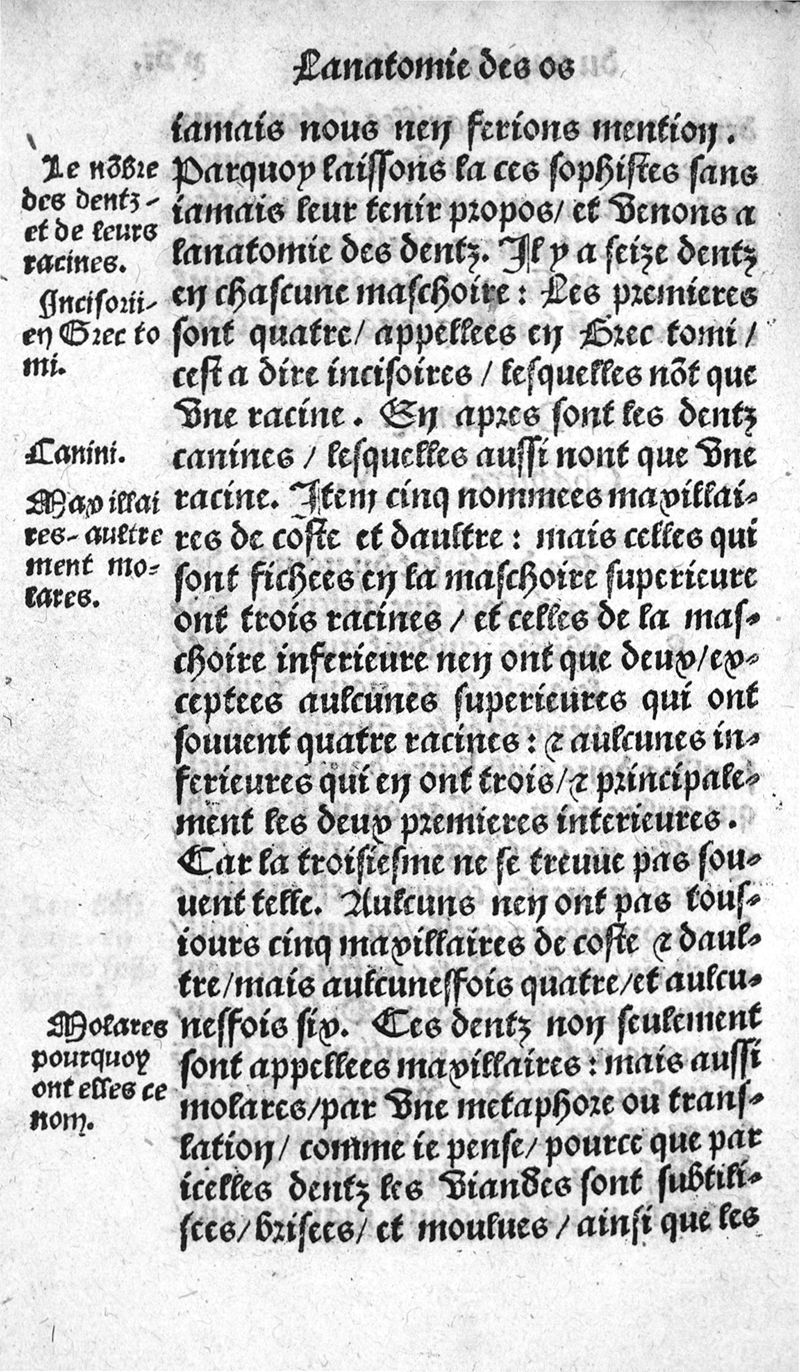 Lanatomie des os
iamais nous nen ferions mention.
Parquoy laissons la ces sophistes sans
iamais leur tenir propos/ et venons a
lanatomie des dentz. Il y a seize dentz
en chascune maschoire: Les premieres
sont quatre/ appellees en Grec tomi/
cest a dire incisoires / lesquelles nõt que
vne racine. En apres sont les dentz
canines / lesquelles aussi nont que vne
racine. Item cinq nommees maxillai-
res de coste et daultre: mais celles qui
sont fichees en la maschoire superieure
ont trois racines / et celles de la mas-
choire inferieure nen ont que deux/ex-
ceptees aulcunes superieures qui ont
souuent quatre racines: ⁊ aulcunes in-
ferieures qui en ont trois/⁊ principale-
ment les deux premieres interieures.
Car la troisiesme ne se treuue pas sou-
uent telle. Aulcuns nen ont pas tous-
iours cinq maxillaires de coste ⁊ daul-
tre/mais aulcuneffois quatre/et aulcu-
neffois six. Ces dentz non seulement
sont appellees maxillaires: mais aussi
molares/par vne metaphore ou trans-
lation/ comme ie pense/ pource que par
icelles dentz les viandes sont subtili-
sees/brisees/ et moulues /ainsi que les
Le nõbre
des dentz-
et de leurs
racines.
Incisorii-
en Grec to
mi.
Canini.
Maxillai
res- aultre
ment mo-
lares.
Molares
pourquoy
ont elles ce
nom.